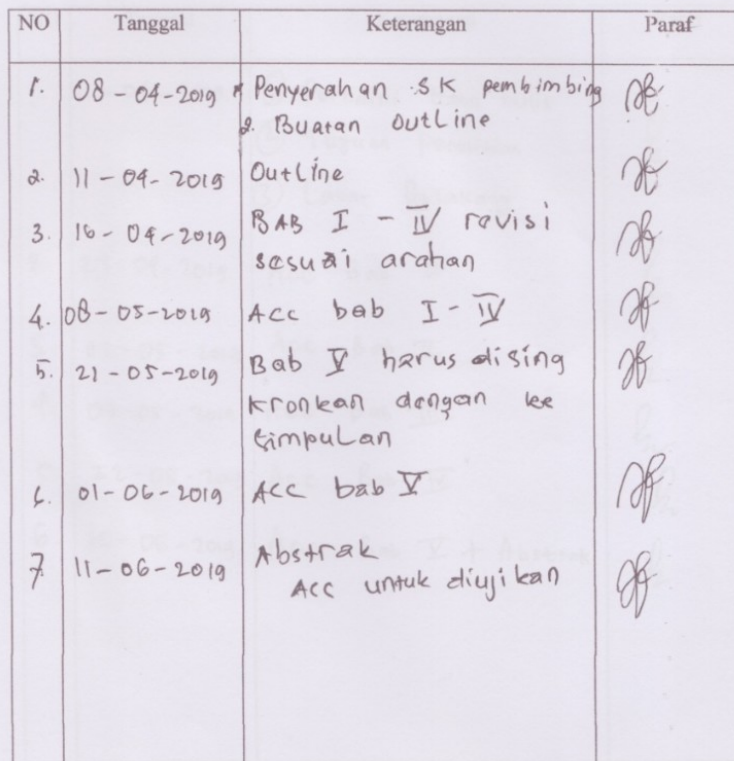 NO Tanggal Keterangan Paraf
1. 08-04-2019 1. Penyerahan SK pembimbing
2. Buatan OutLine
2. 11-04-2019 OutLine
3. 16-04-2019 BAB I - IV revisi
sesuai arahan
4. 08-05-2019 Acc bab I - IV
5. 21-05-2019 Bab V harus dising
kronkan dengan ke
simpulan
6. 01-06-2019 Acc bab V
7. 11-06-2019 Abstrak
Acc untuk diujikan